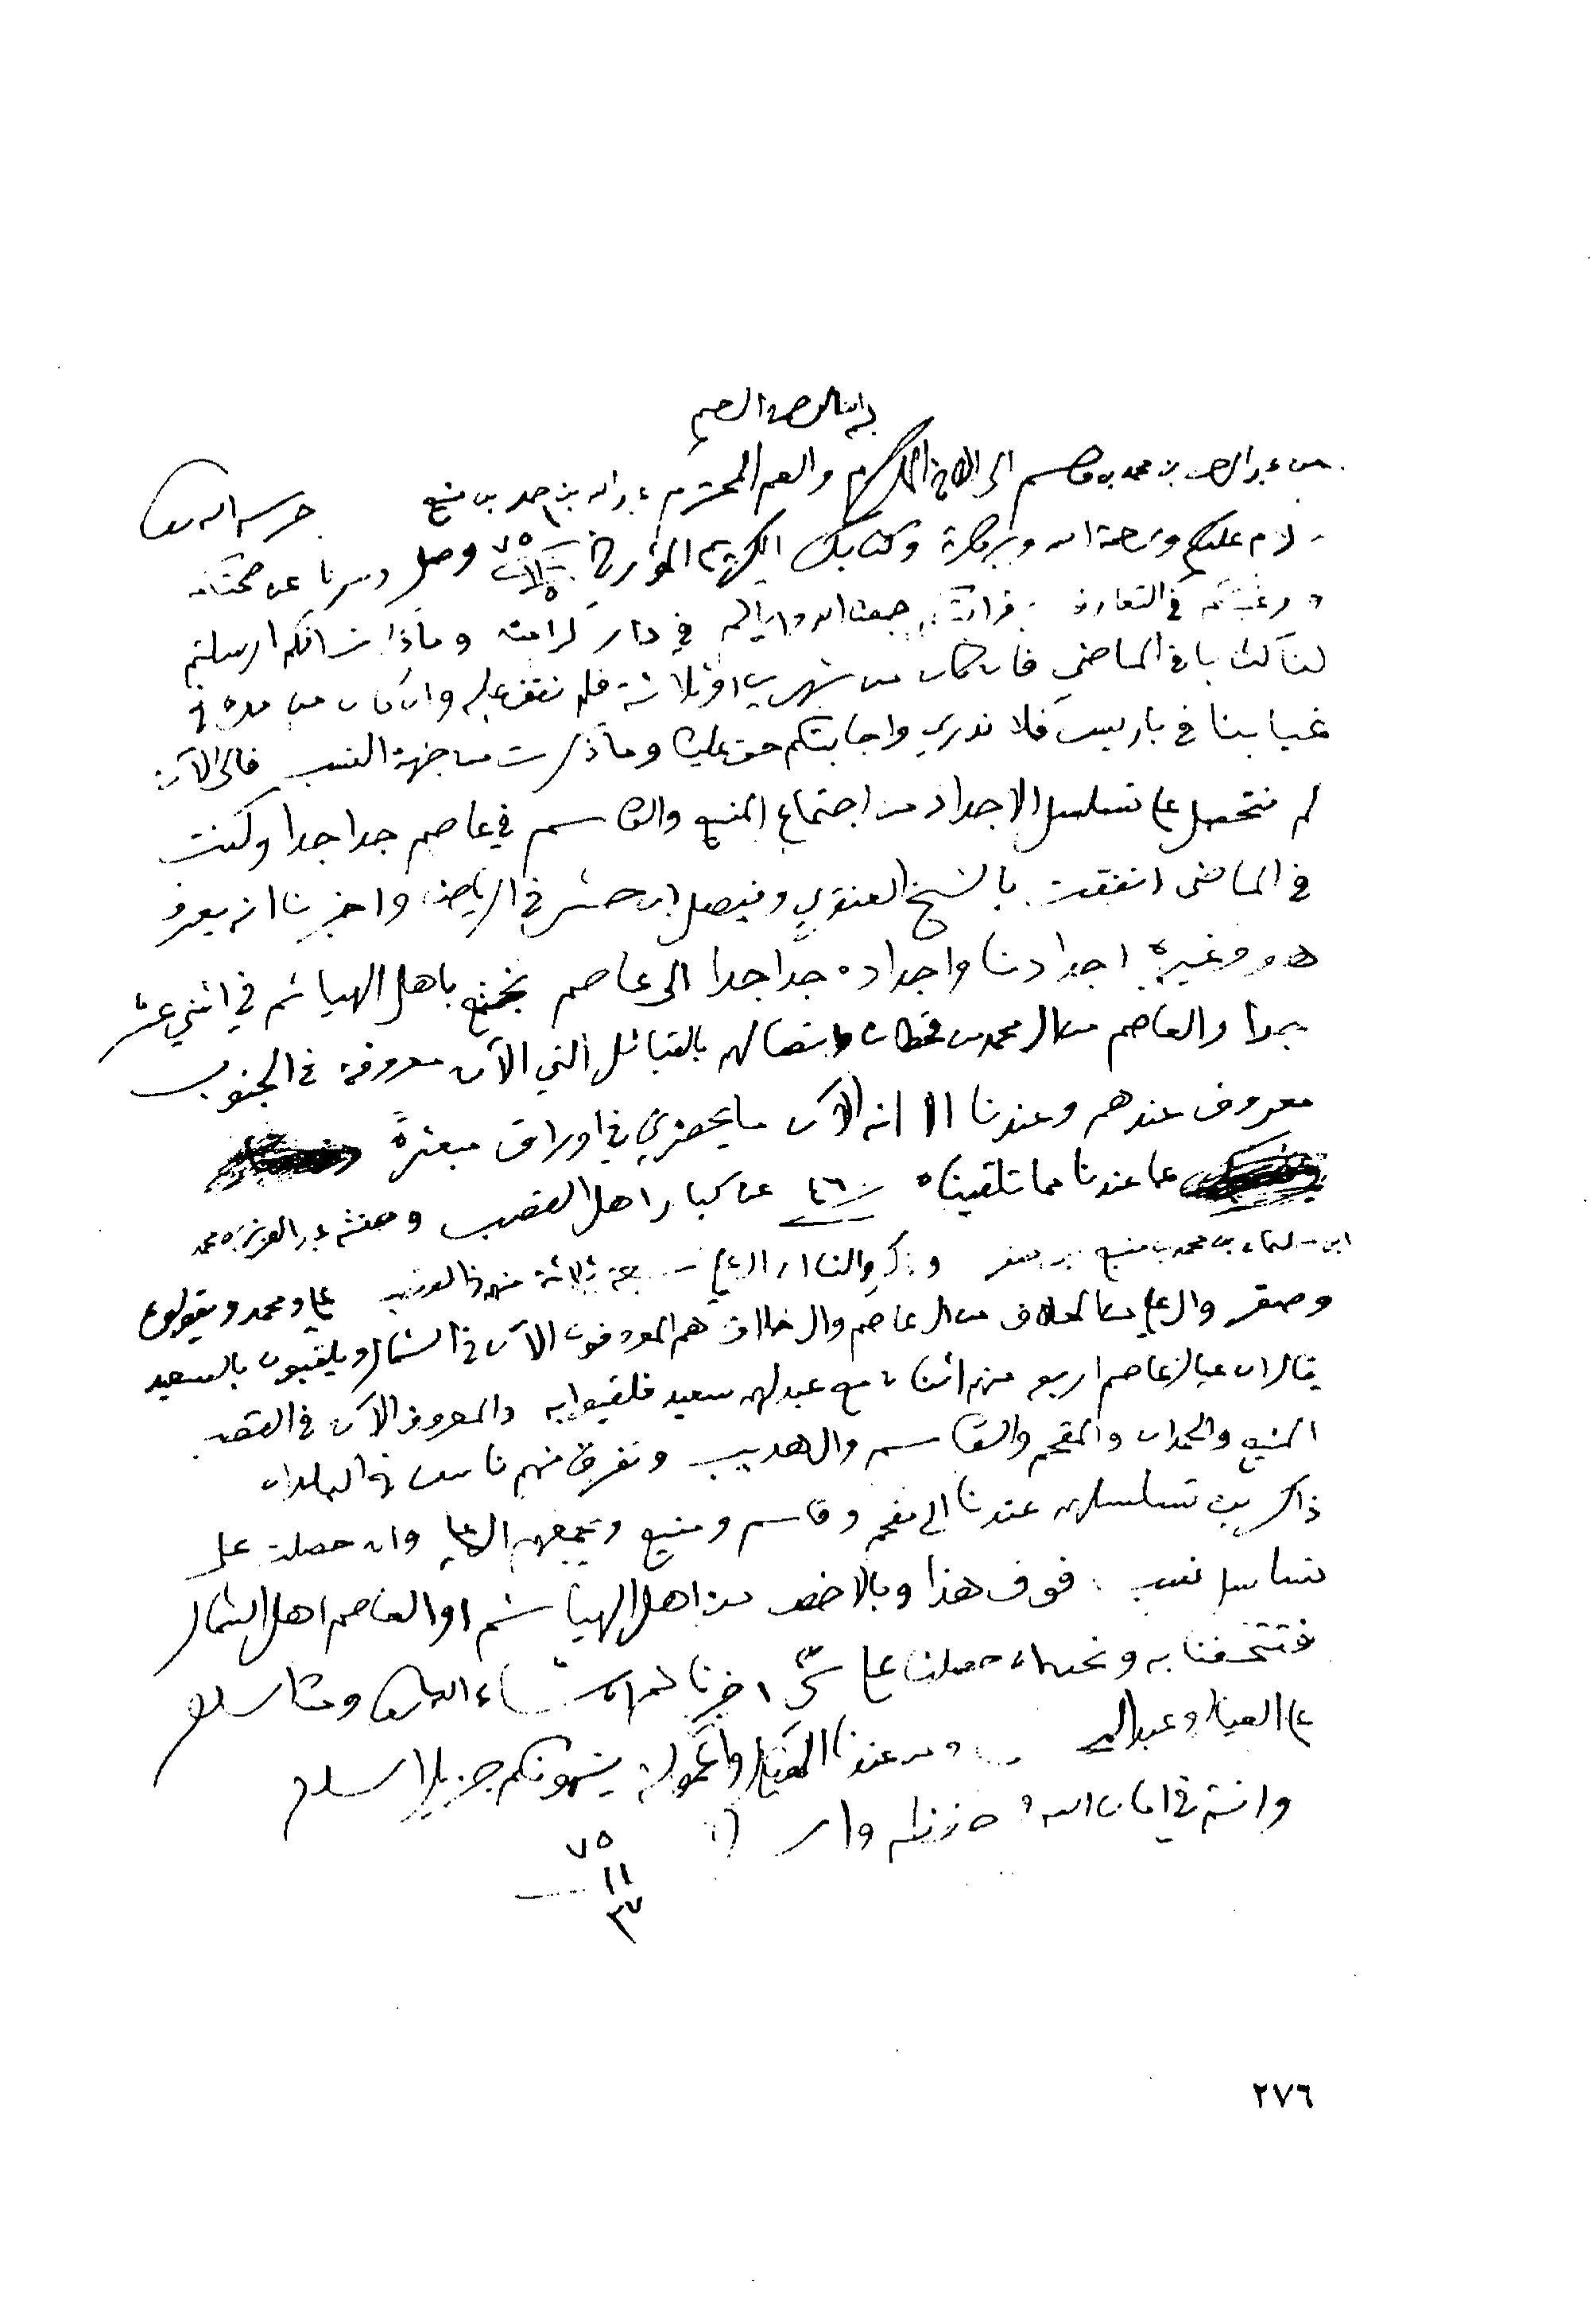 بسم الله الرحمن الرحيم
من عبدالرحمن بن محمد بن قاسم الى الاخ المكرم والعم المحترم عبدالله بن حمد بن منيع حرسه الله تعالى
سلام عليكم ورحمة الله وبركاته وكتابكم الكريم المؤرخ ٧٥ وصل وسرنا عن صحتكم
ورغبتكم في التعارف جمعنا الله واياكم في دار كرامته وماذا انكم ارسلتم
لنا كتابا في الماضي فان كان من شهرين او ثلاثة فلم نقف عليه وان كان من مدة في
غيابنا في باريس فلا ندري واجابتكم حق علينا وما ذكرت من جهة النسب فالى الآن
لم نتحصل على تسلسل الاجداد من اجتماع المنيع والقاسم في عاصم جدا جدا وكنت
في الماضي اتفقت بالشيخ العنقري وفيصل ابن حشر في الرياض واخبرنا انه يعرف
هو وغيره اجدادنا واجداده جدا جدا الى عاصم نجتمع باهل الهياثم في اثني عشر
جدا والعاصم من ال محمد من قحطان واتصالهم بالقبائل التي الآن معروفة في الجنوب
معروف عندهم وعندنا الا انه الآن ما يحضرني في اوراق مبعثرة
عما عندنا مما تلقيناه ٤٦ عن كبار اهل القصب ومنهم عبدالعزيز بن محمد
ابن سليمان بن محمد بن منيع بن صقر وذكر لنا ان ال علي سبعة ثلاثة منهم في القصب علي ومحمد ويقولون
وصقر وال علي من الخلاف من ال عاصم وال خلاف هم المعروفون الآن في الشمال ويلقبون بالسعيد
يقال ان عيال عاصم اربعة منهم اثنان مع عبد لهم سعيد فلقبوا به والمعروف الآن في القصب
المنيع والحمدان والمقحم والقاسم وال هديب وتفرق منهم ناس في البلدان
ذاكرين تسلسلهم عندنا الى مقحم وقاسم ومنيع ويجمعهم ال علي وان حصلت على
تسلسل نسب فوق هذا وبالاخص من اهل الهياثم او العاصم اهل الشمال
فتتحفنا به ونحن ان حصلنا على شيء اخبرناكم ان شاء الله تعالى ومنا سلام
على العيال وعبدالله ومن عندنا العيال والحمولة ينهونكم جزيل السلام
وانتم في امان الله وحفظه والسلام
٧٥
١١
٢٧
٢٧٦